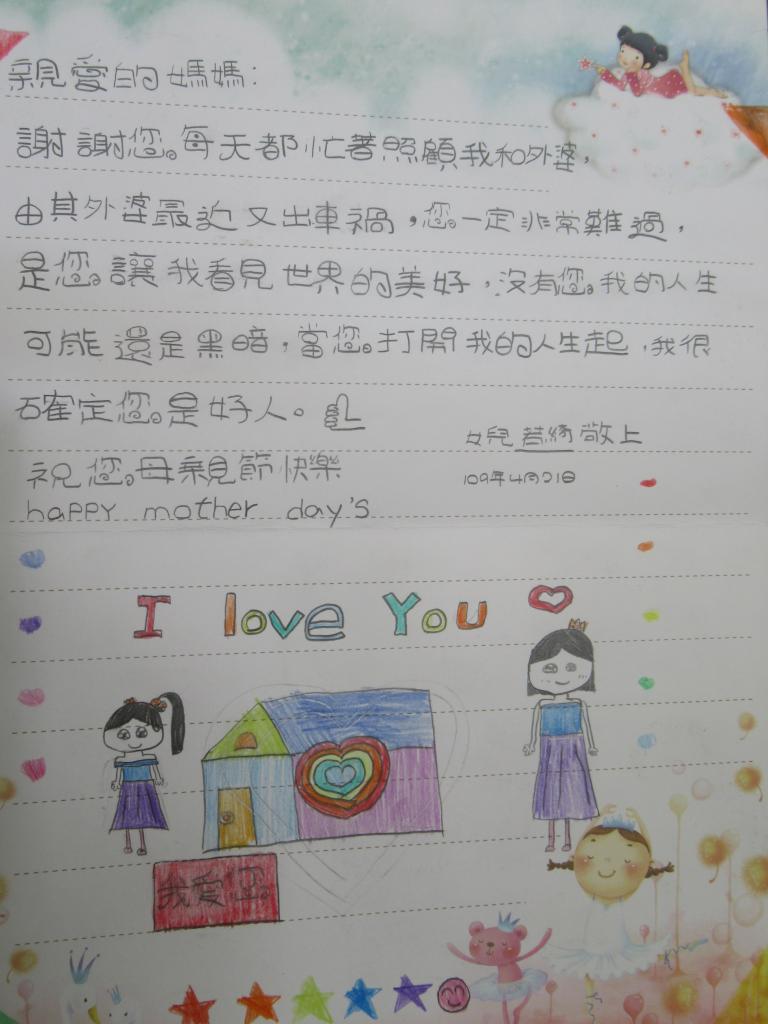 親愛的媽媽：
謝謝您。每天都忙著照顧我和外婆，
由其外婆最近又出車禍，您一定非常難過，
是您。讓我看見世界的美好，沒有您。我的人生
可能還是黑暗，當您。打開我的人生起，我很
確定您。是好人。
女兒 若緣 敬上
祝您。母親節快樂
109年4月21日
happy mother day's
I love You
我愛您。